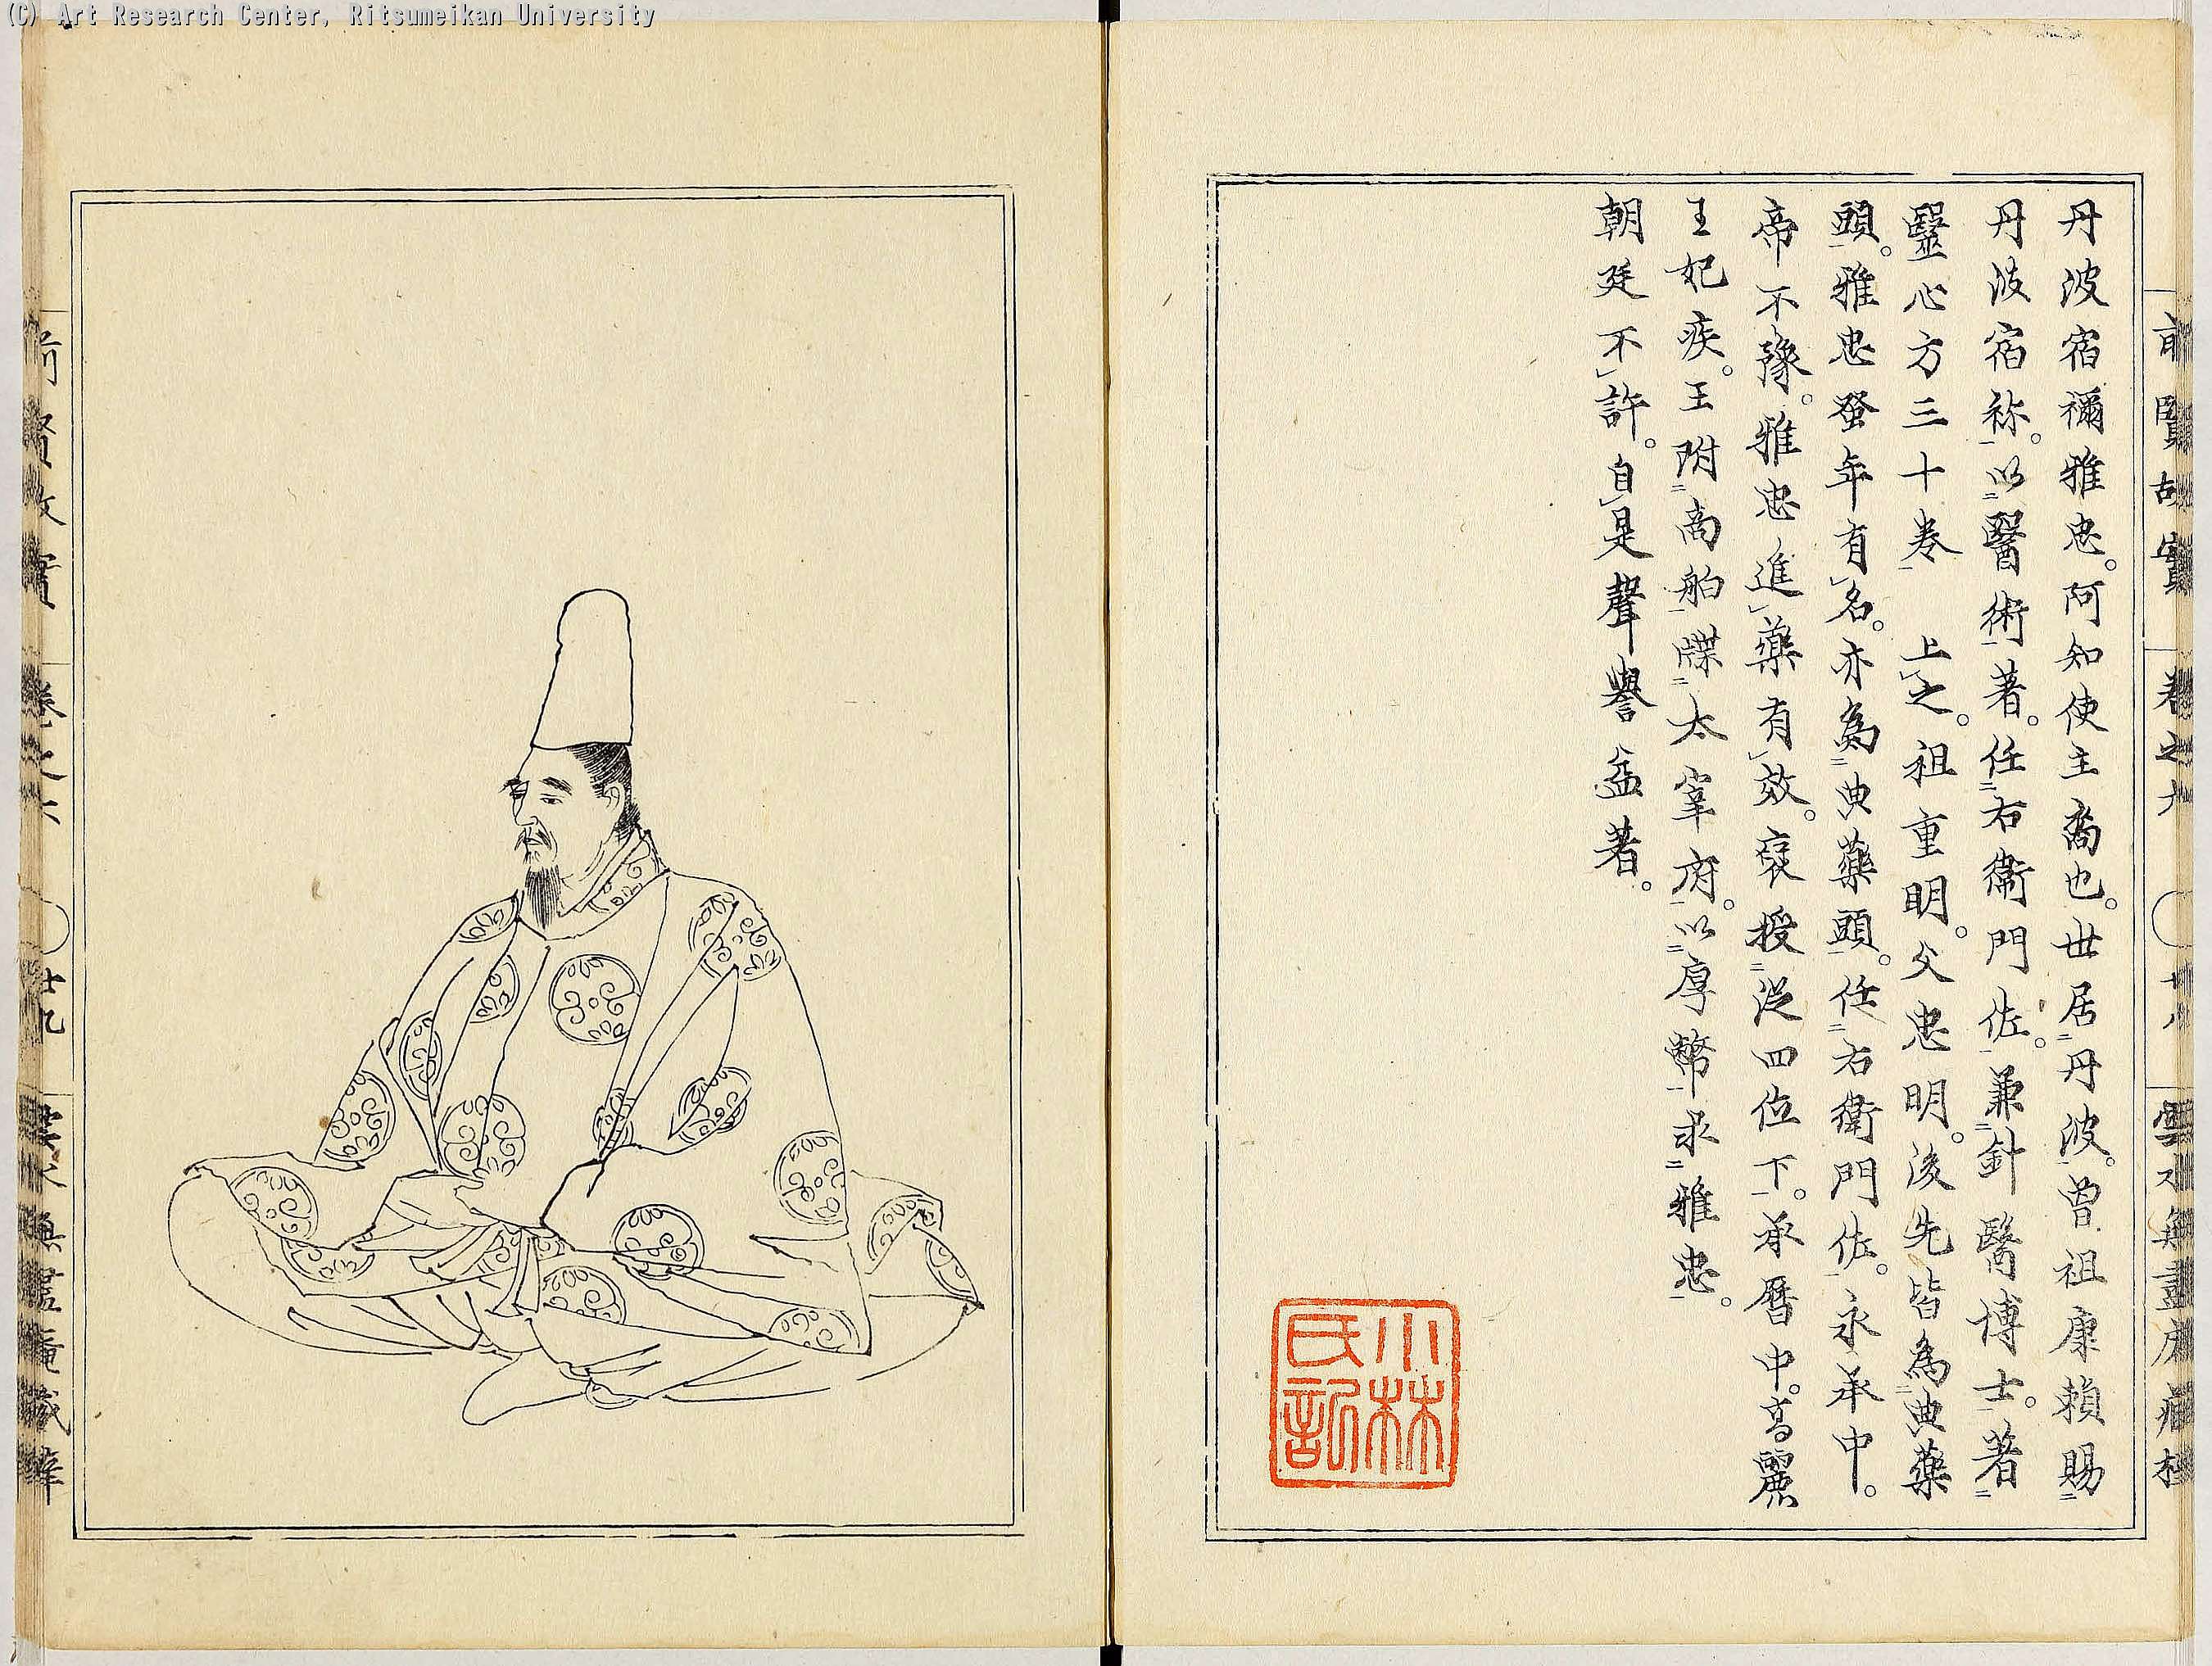 (C) Art Research Center, Ritsumeikan University
前賢故實 卷之六 廿八 雲水無盡庵藏梓
丹波宿禰雅忠。阿知使主裔也。世居丹波。曾祖康賴賜
丹波宿祢。以醫術著。任右衞門佐。兼針醫博士。著
毉心方三十卷 上之。祖重明。父忠明。後先皆為典藥
頭。雅忠蚤年有名。亦為典藥頭。任右衞門佐。永承中。
帝不豫。雅忠進藥有效。裦授從四位下。承曆中。高麗
王妃疾。王附商舶牒太宰府。以厚幣求雅忠。
朝廷不許。自是聲譽益著。
小林
氏記
前賢故實 卷之六 廿九 雲水無盡庵藏梓